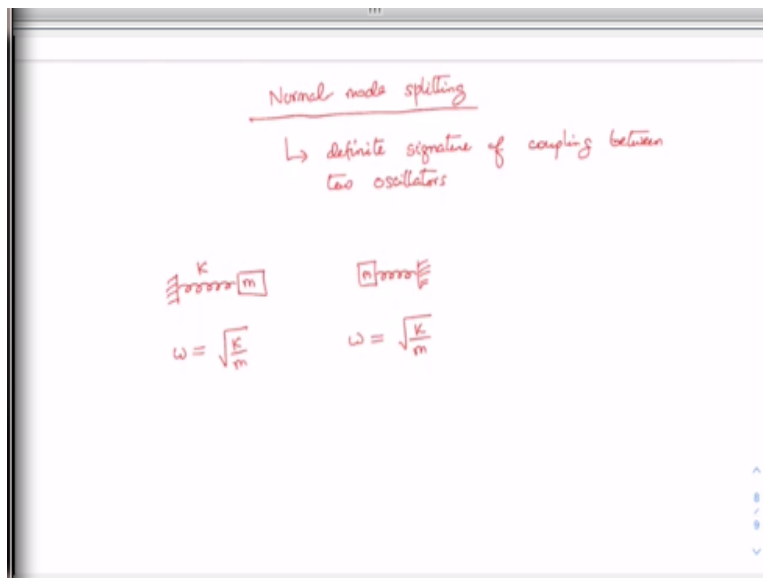 Normal mode splitting
↳ definite signature of coupling between
two oscillators
K
m m
ω = √(K/m) ω = √(K/m)
8
/
9